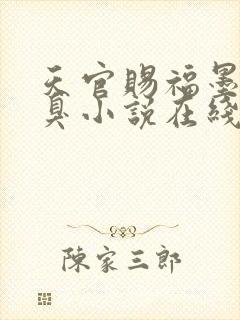 天官賜福墨
臭小説在綫
陳家三郎